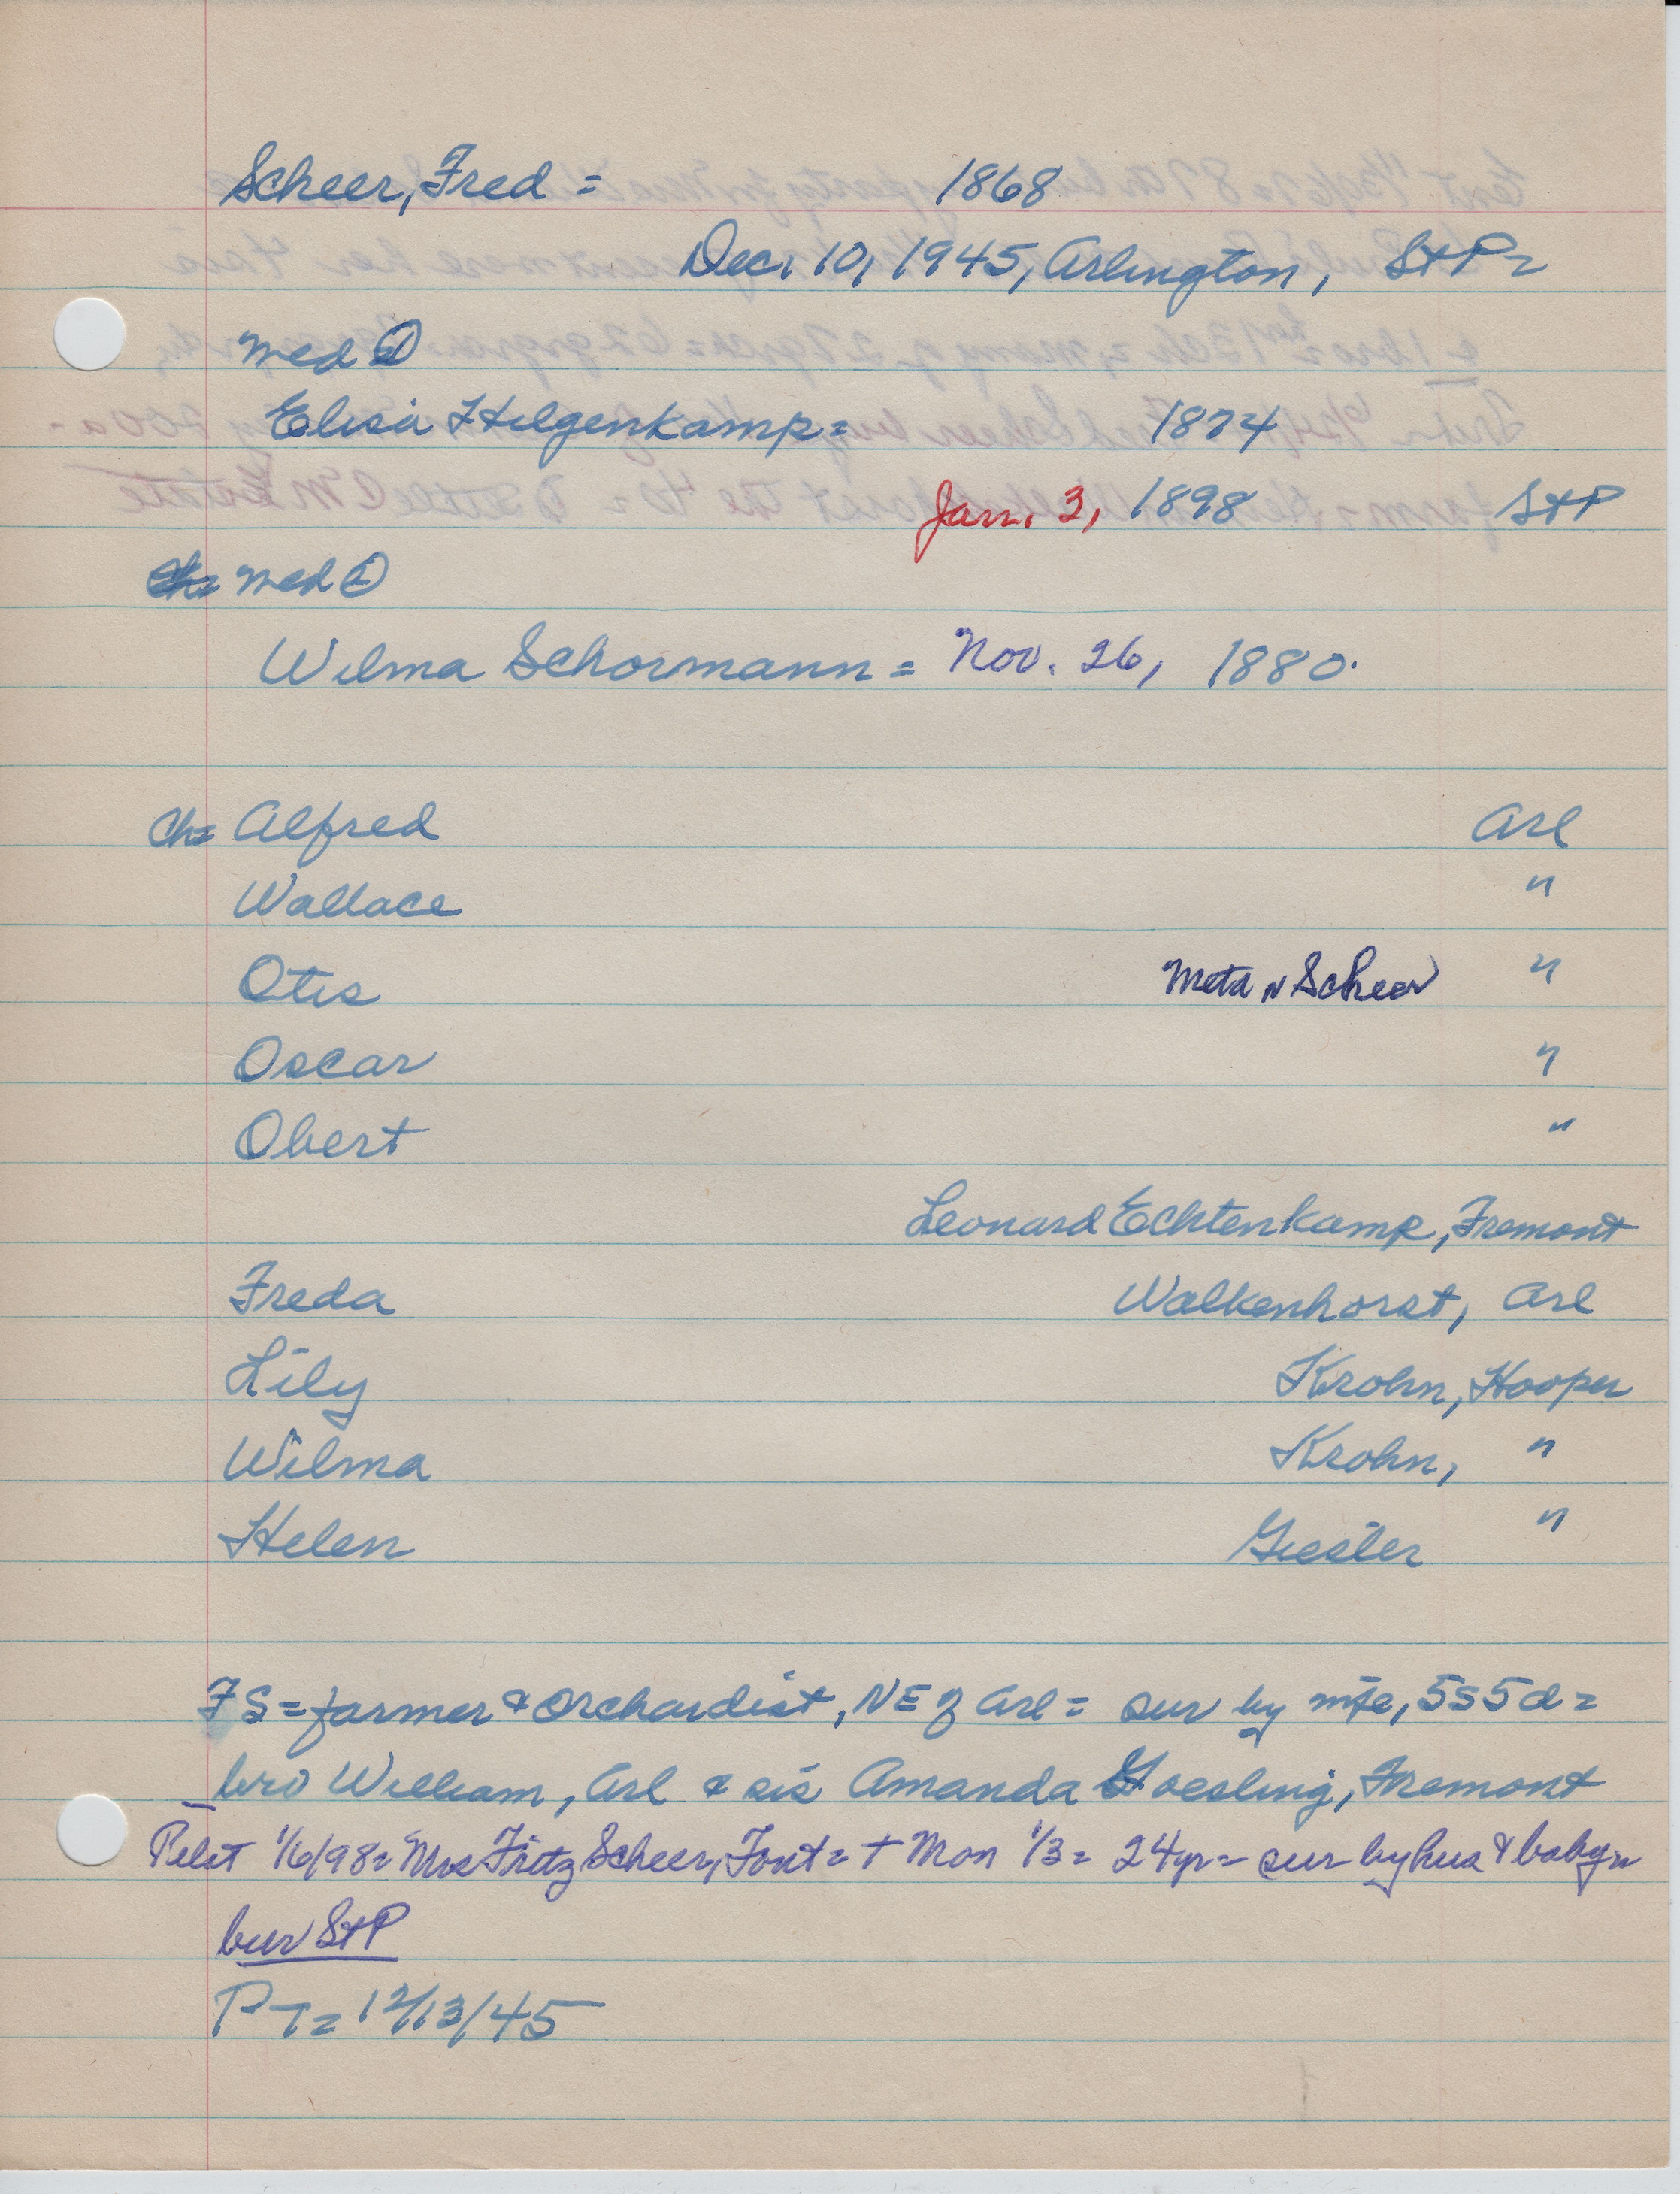 Scheer, Fred = 1868
Dec. 10, 1945, Arlington, St P =
med ①
Elisa Hilgenkamp = 1874
Jan. 3, 1898 St P
med ②
Wilma Schormann = Nov. 26, 1880.
Ch = Alfred Arl
Wallace "
Otis Meta N Scheer "
Oscar "
Obert "
Leonard Echtenkamp, Fremont
Freda Walkenhorst, Arl
Lily Krohn, Hooper
Wilma Krohn, "
Helen Giesler "
FS = farmer & orchardist, NE of Arl = sur by wife, 5s 5d =
bro William, Arl & sis Amanda Goesling, Fremont
1/6/98 = Mrs Fritz Scheer, Font = + Mon 1/3 = 24yr = sur by hus & baby =
bur St P
PT = 12/13/45